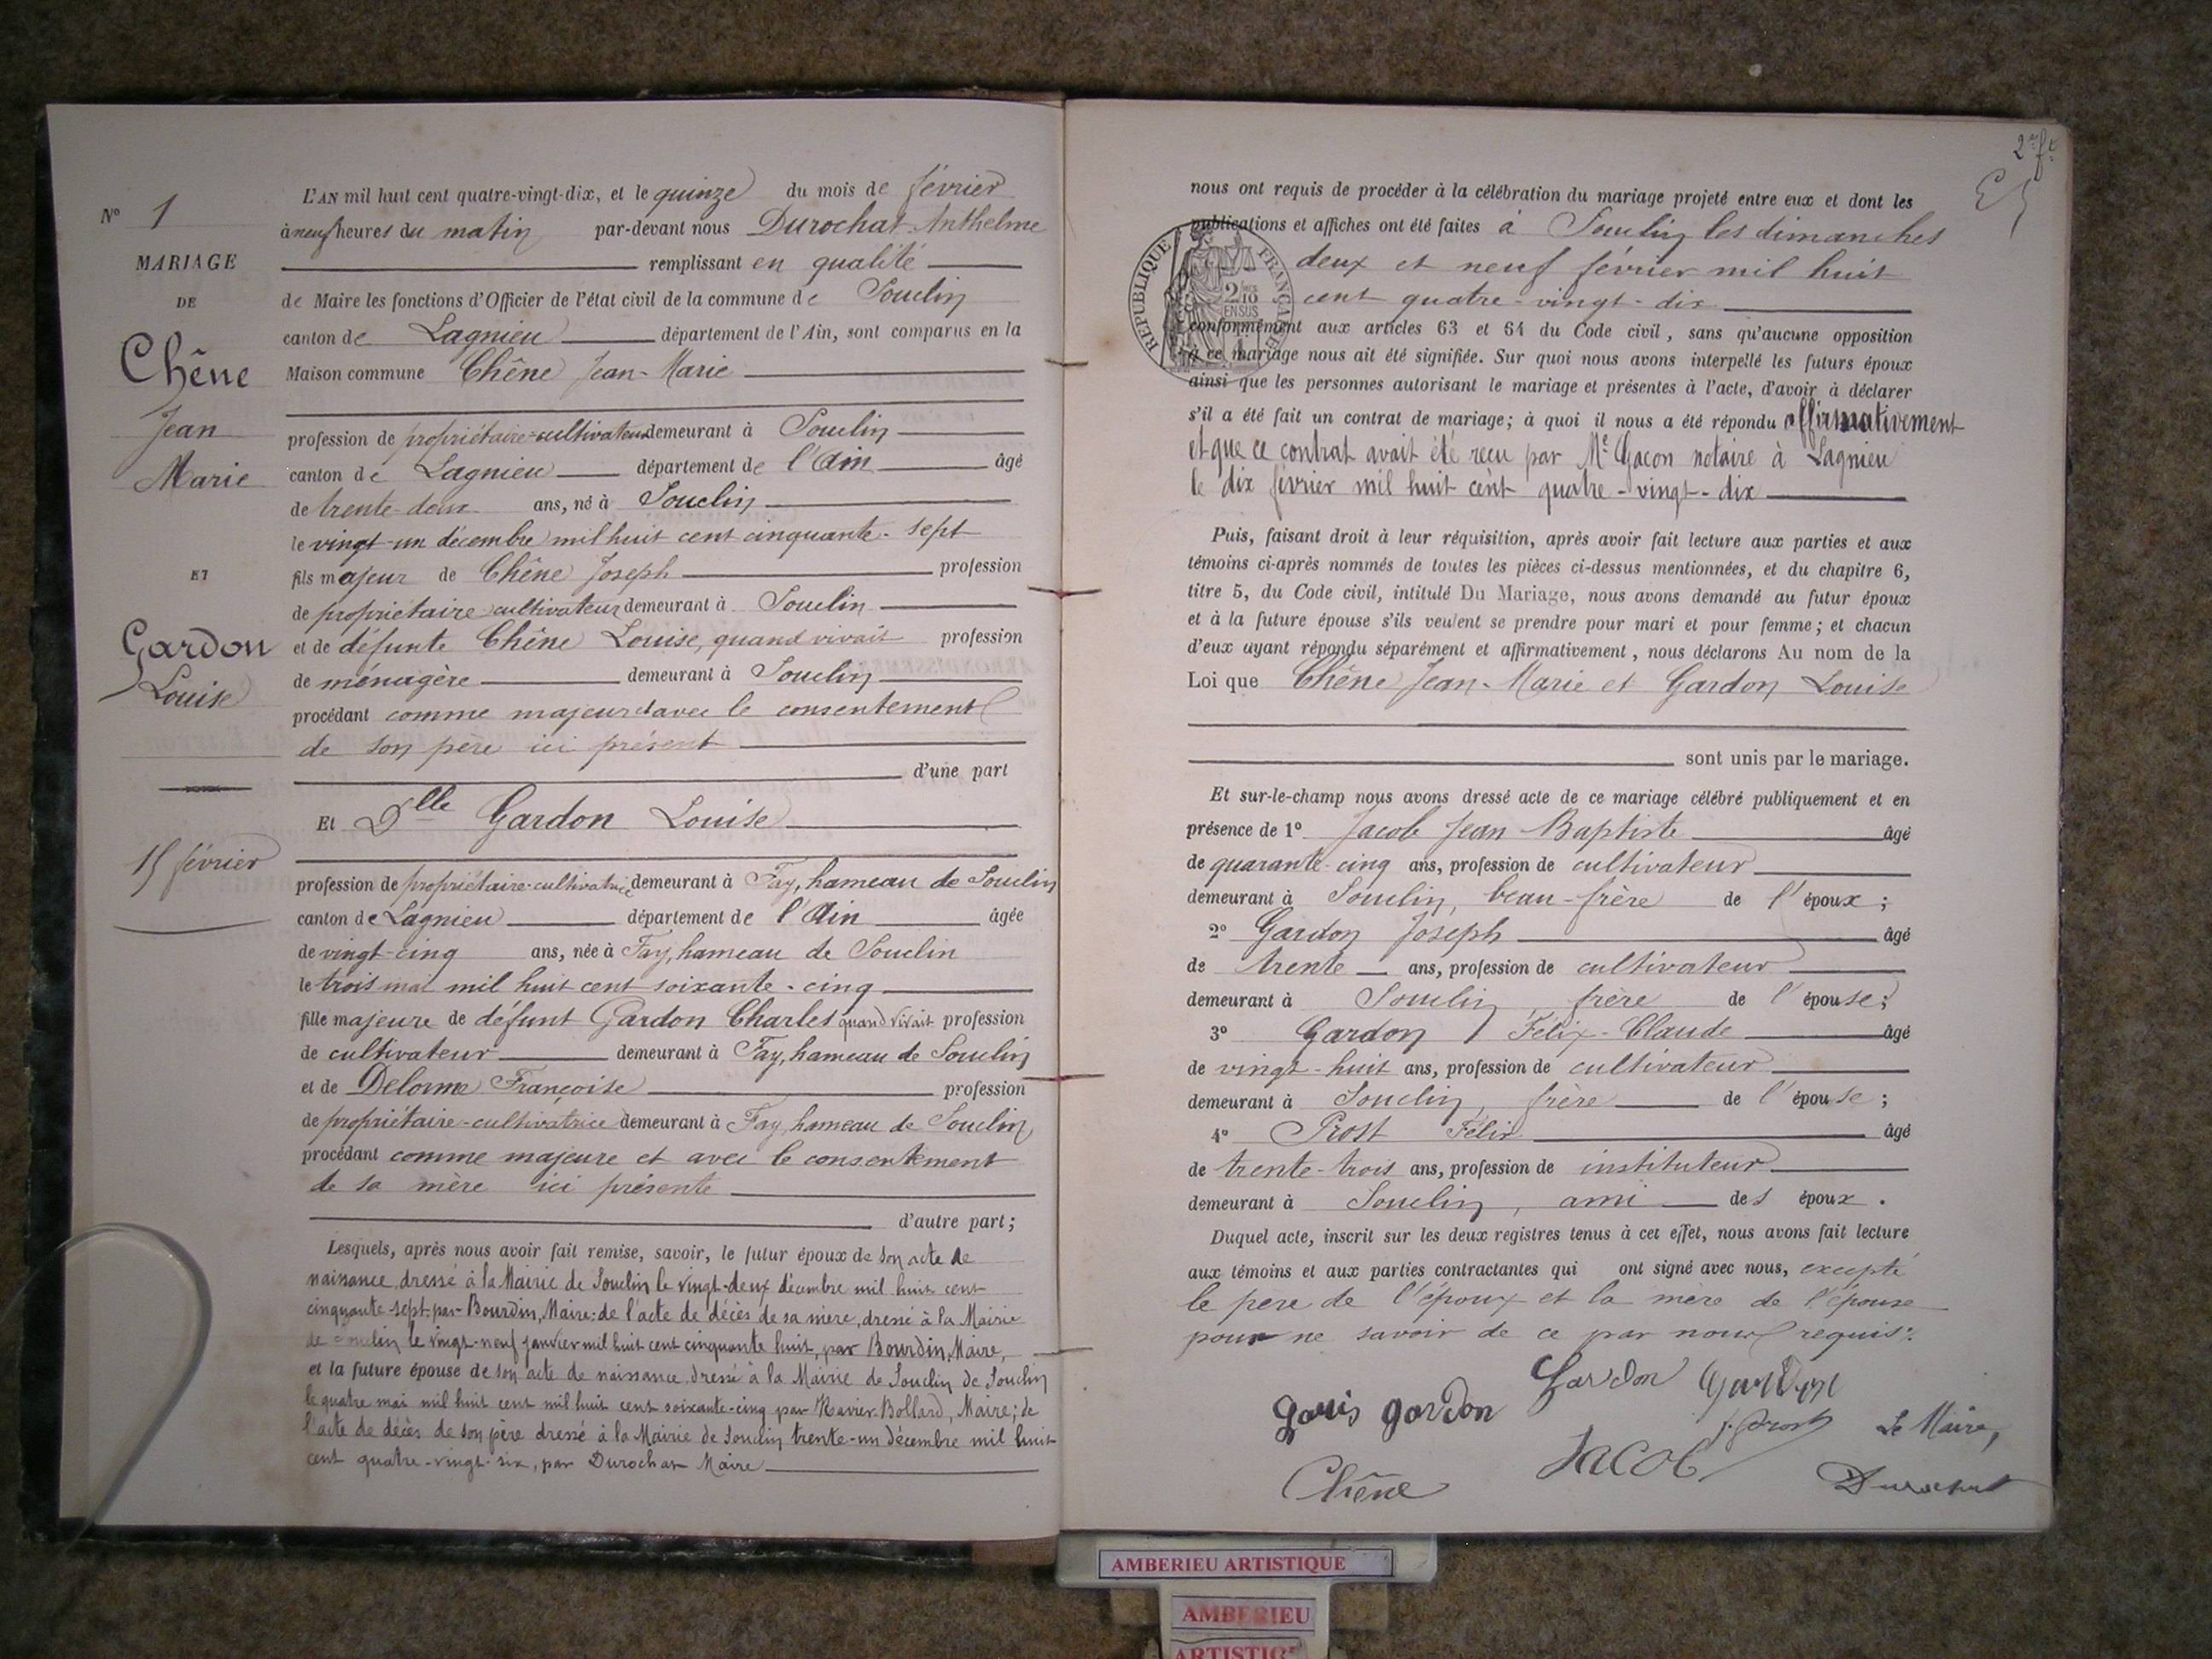 N° 1
MARIAGE
DE
Chêne
Jean
Marie
ET
Gardon
Louise
15 février
L'AN mil huit cent quatre-vingt-dix, et le quinze du mois de février
à neuf heures du matin par-devant nous Durochat Anthelme
remplissant en qualité
de Maire les fonctions d'Officier de l'état civil de la commune de Souclin
canton de Lagnieu département de l'Ain, sont comparus en la
Maison commune Chêne Jean-Marie
profession de propriétaire-cultivateur demeurant à Souclin
canton de Lagnieu département de l'Ain âgé
de trente-deux ans, né à Souclin
le vingt-un décembre mil huit cent cinquante-sept
fils majeur de Chêne Joseph profession
de propriétaire cultivateur demeurant à Souclin
et de défunte Chêne Louise, quand vivait profession
de ménagère demeurant à Souclin
procédant comme majeur et avec le consentement
de son père ici présent
d'une part
Et Dlle Gardon Louise
profession de propriétaire-cultivatrice demeurant à Fay, hameau de Souclin
canton de Lagnieu département de l'Ain âgée
de vingt-cinq ans, née à Fay, hameau de Souclin
le trois mai mil huit cent soixante-cinq
fille majeure de défunt Gardon Charles quand vivait profession
de cultivateur demeurant à Fay, hameau de Souclin
et de Delorme Françoise profession
de propriétaire-cultivatrice demeurant à Fay, hameau de Souclin,
procédant comme majeure et avec le consentement
de sa mère ici présente
d'autre part;
Lesquels, après nous avoir fait remise, savoir, le futur époux de son acte de
naissance, dressé à la Mairie de Souclin le vingt-deux décembre mil huit cent
cinquante-sept par Bourdin, Maire; de l'acte de décès de sa mère, dressé à la Mairie
de le vingt-neuf janvier mil huit cent cinquante huit, par Bourdin, Maire,
et la future épouse de son acte de naissance dressé à la Mairie de Souclin de Souclin
le quatre mai mil huit cent mil huit cent soixante-cinq par Xavier Bollard, Maire; de
l'acte de décès de son père dressé à la Mairie de Souclin trente-un décembre mil huit
cent quatre-vingt-six, par Durochat Maire
nous ont requis de procéder à la célébration du mariage projeté entre eux et dont les
publications et affiches ont été faites à Souclin les dimanches
deux et neuf février mil huit
cent quatre-vingt-dix
RÉPUBLIQUE FRANÇAISE
2/10 EN SUS
conformément aux articles 63 et 64 du Code civil, sans qu'aucune opposition
à ce mariage nous ait été signifiée. Sur quoi nous avons interpellé les futurs époux
ainsi que les personnes autorisant le mariage et présentes à l'acte, d'avoir à déclarer
s'il a été fait un contrat de mariage; à quoi il nous a été répondu affirmativement
et que ce contrat avait été reçu par Me Gacon notaire à Lagnieu
le dix février mil huit cent quatre-vingt-dix
Puis, faisant droit à leur réquisition, après avoir fait lecture aux parties et aux
témoins ci-après nommés de toutes les pièces ci-dessus mentionnées, et du chapitre 6,
titre 5, du Code civil, intitulé Du Mariage, nous avons demandé au futur époux
et à la future épouse s'ils veulent se prendre pour mari et pour femme; et chacun
d'eux ayant répondu séparément et affirmativement, nous déclarons Au nom de la
Loi que Chêne Jean-Marie et Gardon Louise
sont unis par le mariage.
Et sur-le-champ nous avons dressé acte de ce mariage célébré publiquement et en
présence de 1° Jacob Jean Baptiste âgé
de quarante-cinq ans, profession de cultivateur
demeurant à Souclin, beau-frère de l'époux;
2° Gardon Joseph âgé
de trente ans, profession de cultivateur
demeurant à Souclin frère de l'épouse;
3° Gardon Félix-Claude âgé
de vingt-huit ans, profession de cultivateur
demeurant à Souclin, frère de l'épouse;
4° Prost Félix âgé
de trente-trois ans, profession de instituteur
demeurant à Souclin, ami des époux.
Duquel acte, inscrit sur les deux registres tenus à cet effet, nous avons fait lecture
aux témoins et aux parties contractantes qui ont signé avec nous, excepté
le père de l'époux et la mère de l'épouse
pour ne savoir de ce par nous requis.
Gardon Gardon
Louis gardon
F. Prost Le Maire,
Jacob
Chêne Durochat
AMBERIEU ARTISTIQUE
AMBERIEU